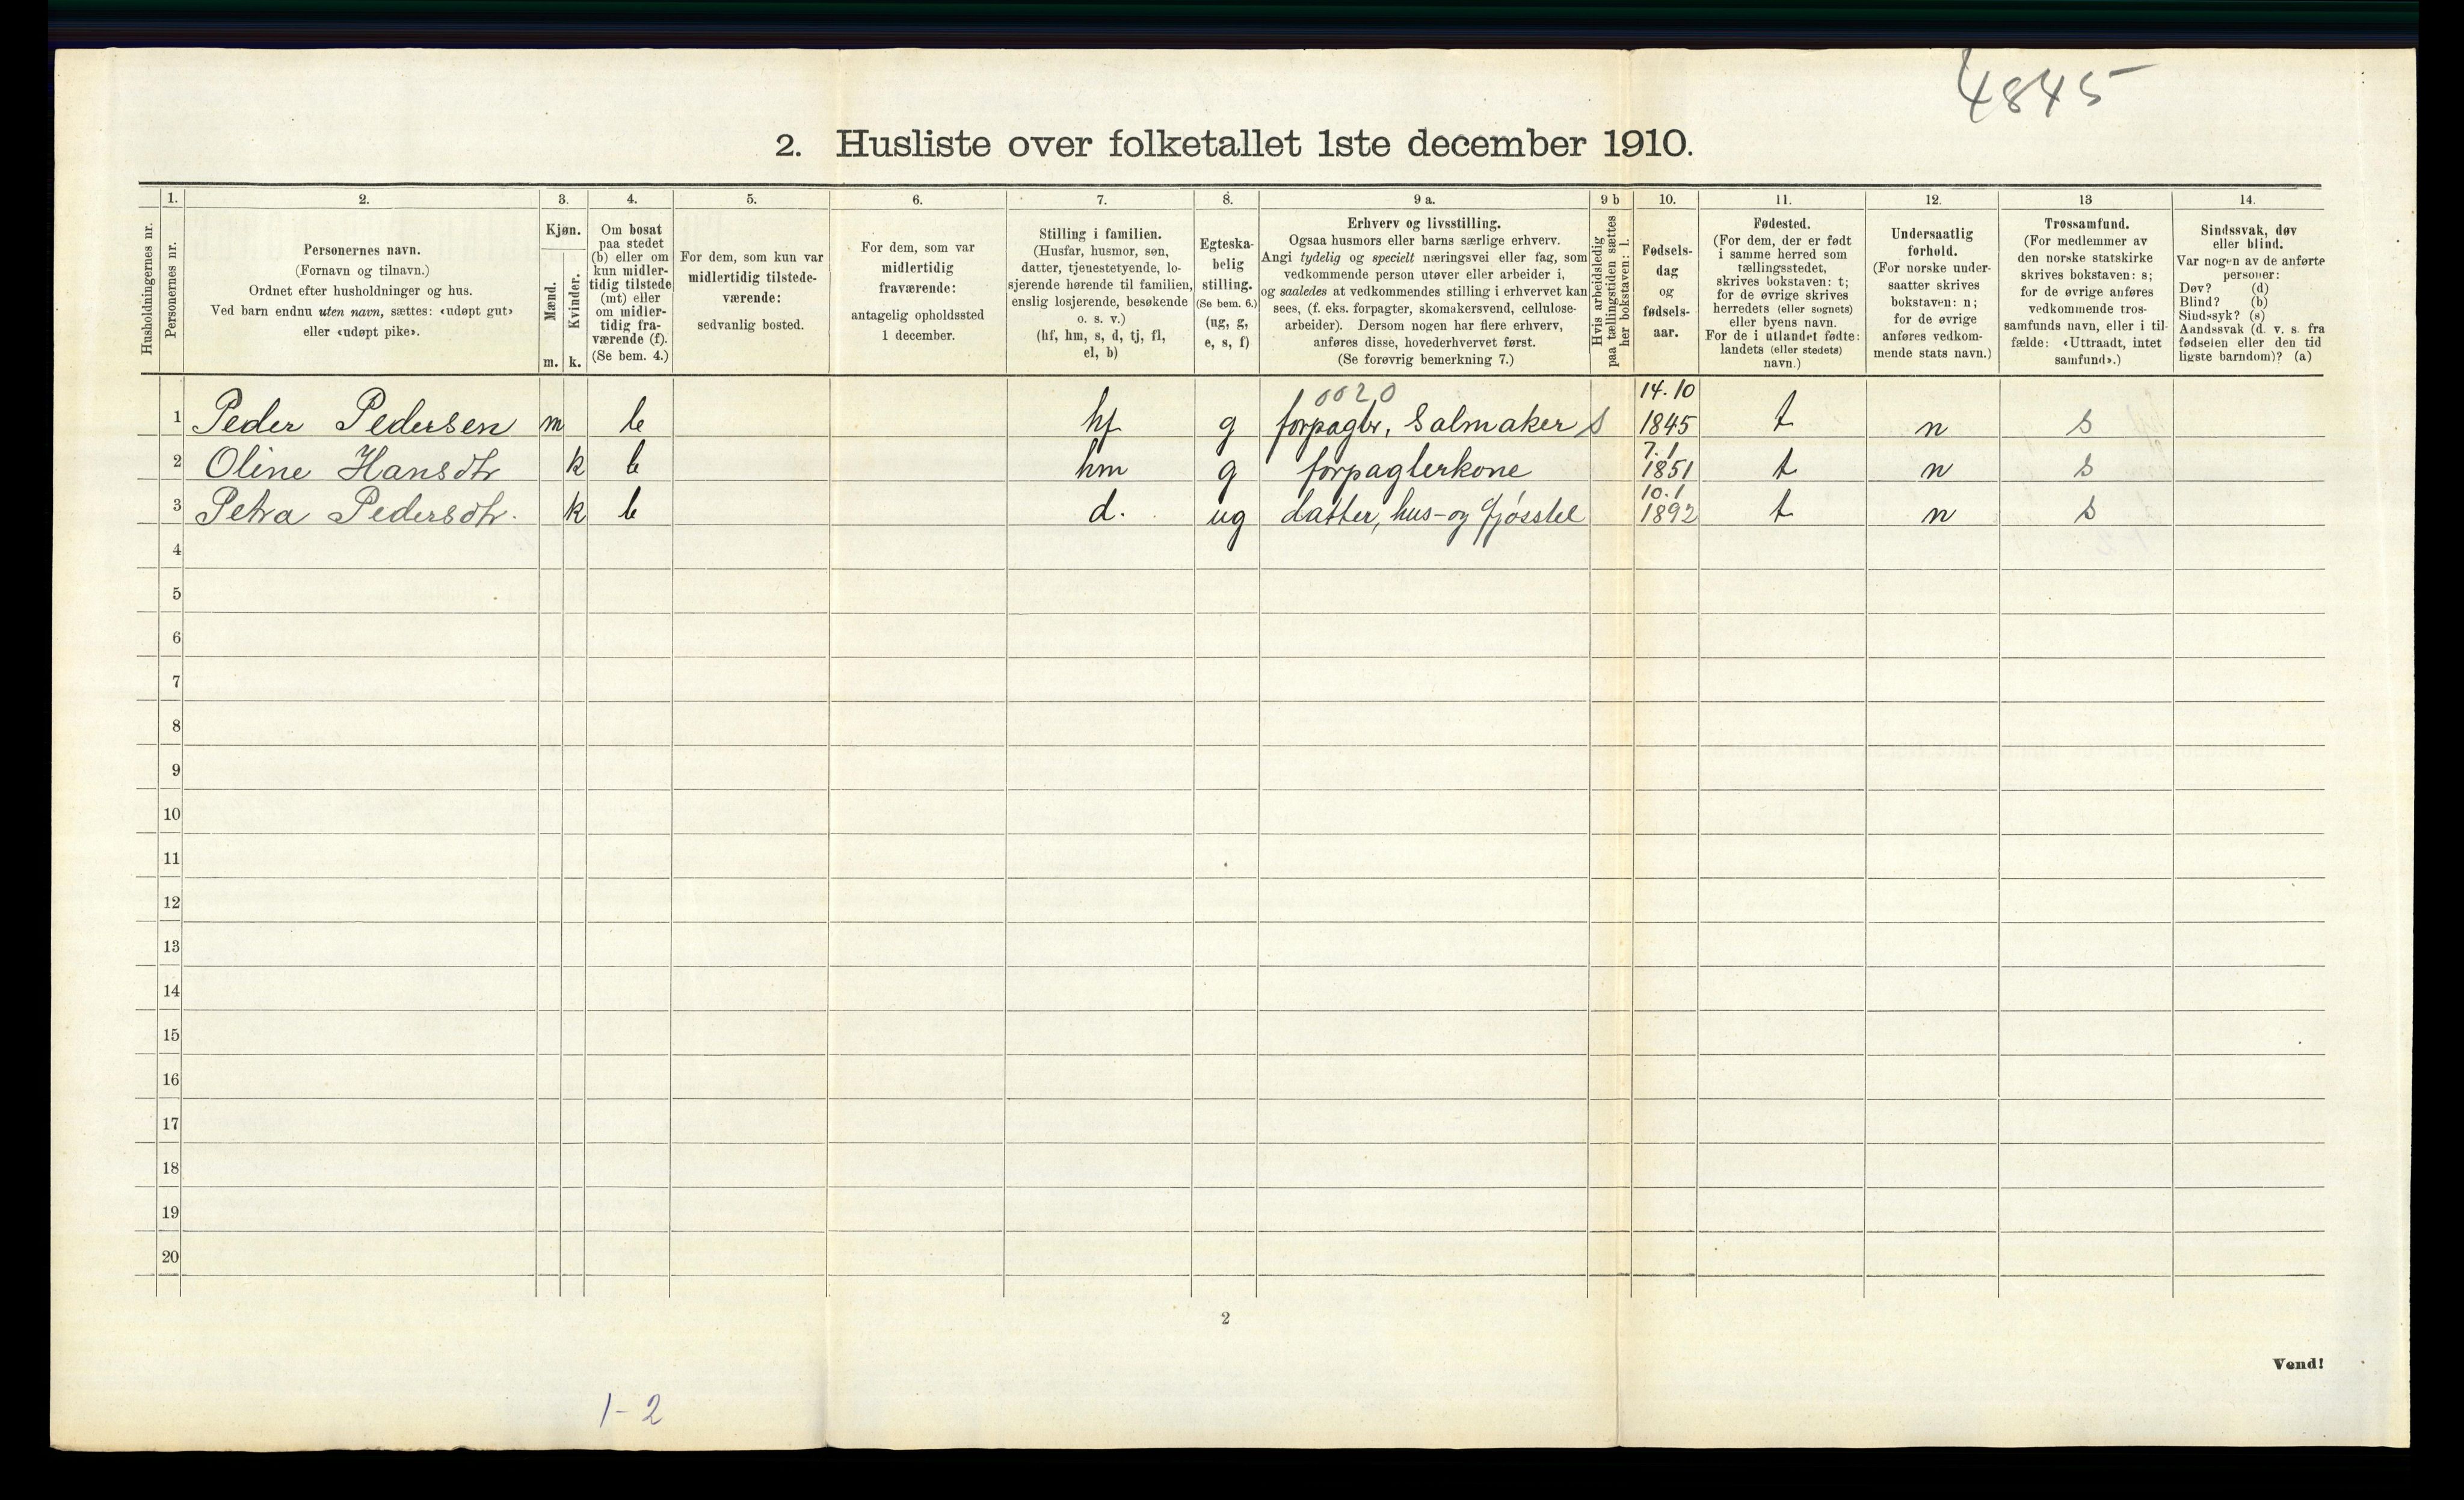 4845
2. Husliste over folketallet 1ste december 1910.
Husholdningernes nr.
1.
Personernes nr.
2.
Personernes navn.
(Fornavn og tilnavn.)
Ordnet efter husholdninger og hus.
Ved barn endnu uten navn, sættes: «udøpt gut»
eller «udøpt pike».
3.
Kjøn.
Mænd.
Kvinder.
m. k.
4.
Om bosat
paa stedet
(b) eller om
kun midler-
tidig tilstede
(mt) eller
om midler-
tidig fra-
værende (f).
(Se bem. 4.)
5.
For dem, som kun var
midlertidig tilstede-
værende:
sedvanlig bosted.
6.
For dem, som var
midlertidig
fraværende:
antagelig opholdssted
1 december.
7.
Stilling i familien.
(Husfar, husmor, søn,
datter, tjenestetyende, lo-
sjerende hørende til familien,
enslig losjerende, besøkende
o. s. v.)
(hf, hm, s, d, tj, fl,
el, b)
8.
Egteska-
belig
stilling.
(Se bem. 6.)
(ug, g,
e, s, f)
9 a.
Erhverv og livsstilling.
Ogsaa husmors eller barns særlige erhverv.
Angi tydelig og specielt næringsvei eller fag, som
vedkommende person utøver eller arbeider i,
og saaledes at vedkommendes stilling i erhvervet kan
sees, (f. eks. forpagter, skomakersvend, cellulose-
arbeider). Dersom nogen har flere erhverv,
anføres disse, hovederhvervet først.
(Se forøvrig bemerkning 7.)
9 b
Hvis arbeidsledig
paa tællingstiden sættes
her bokstaven: l.
10.
Fødsels-
dag
og
fødsels-
aar.
11.
Fødested.
(For dem, der er født
i samme herred som
tællingsstedet,
skrives bokstaven: t;
for de øvrige skrives
herredets (eller sognets)
eller byens navn.
For de i utlandet fødte:
landets (eller stedets)
navn.)
12.
Undersaatlig
forhold.
(For norske under-
saatter skrives
bokstaven: n;
for de øvrige
anføres vedkom-
mende stats navn.)
13
Trossamfund.
(For medlemmer av
den norske statskirke
skrives bokstaven: s;
for de øvrige anføres
vedkommende tros-
samfunds navn, eller i til-
fælde: «Uttraadt, intet
samfund».)
14.
Sindssvak, døv
eller blind.
Var nogen av de anførte
personer:
Døv? (d)
Blind? (b)
Sindssyk? (s)
Aandssvak (d. v. s. fra
fødselen eller den tid
ligste barndom)? (a)
0020 14.10
1 Peder Pedersen m b hf g forpagter, Salmaker s 1845 t n s
7.1
2 Oline Hansdtr k b hm g forpagterkone 1851 t n s
10.1
3 Petra Pedersdtr. k b d. ug datter, hus- og fjøsstel 1892 t n s
4
5
6
7
8
9
10
11
12
13
14
15
16
17
18
19
20
2
Vend!
1-2